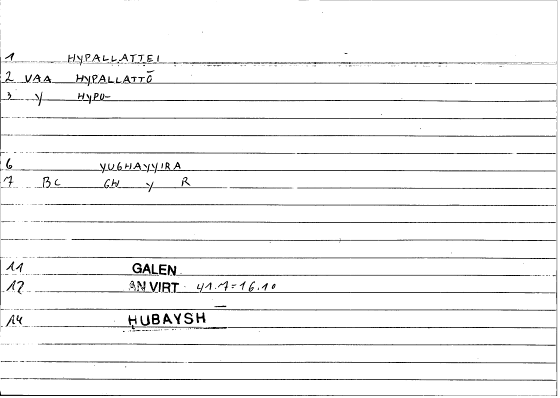 1 HYPALLATTEI
2 VAA HYPALLATTŌ
3 Y HYPO-
6 YUGHAYYIRA
7 BC GH Y R
11 GALEN
12 AN VIRT 41.7=16.10
14 HUBAYSH